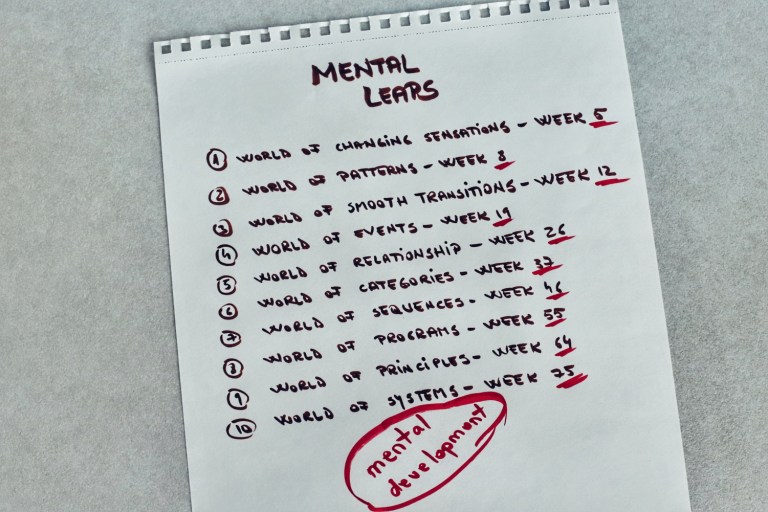 MENTAL
LEAPS
1 WORLD OF CHANGING SENSATIONS - WEEK 5
2 WORLD OF PATTERNS - WEEK 8
3 WORLD OF SMOOTH TRANSITIONS - WEEK 12
4 WORLD OF EVENTS - WEEK 19
5 WORLD OF RELATIONSHIP - WEEK 26
6 WORLD OF CATEGORIES - WEEK 37
7 WORLD OF SEQUENCES - WEEK 46
8 WORLD OF PROGRAMS - WEEK 55
9 WORLD OF PRINCIPLES - WEEK 64
10 WORLD OF SYSTEMS - WEEK 75
mental
development